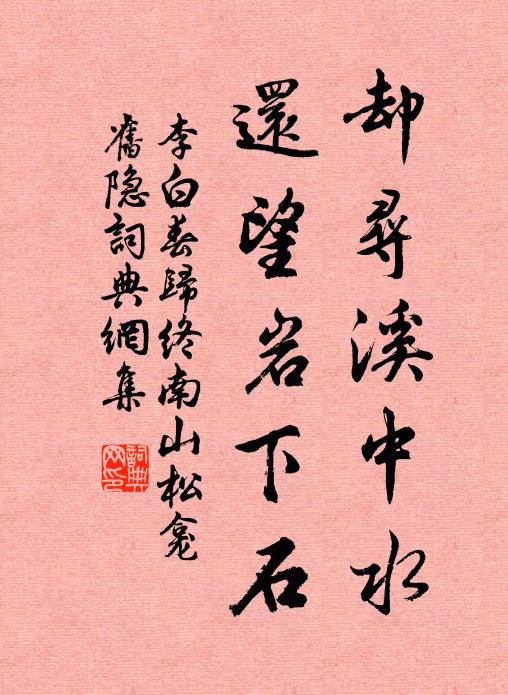 却尋溪中水
還望岩下石
李白春歸終南山松龕
舊隐詞典網集
詞典
网印